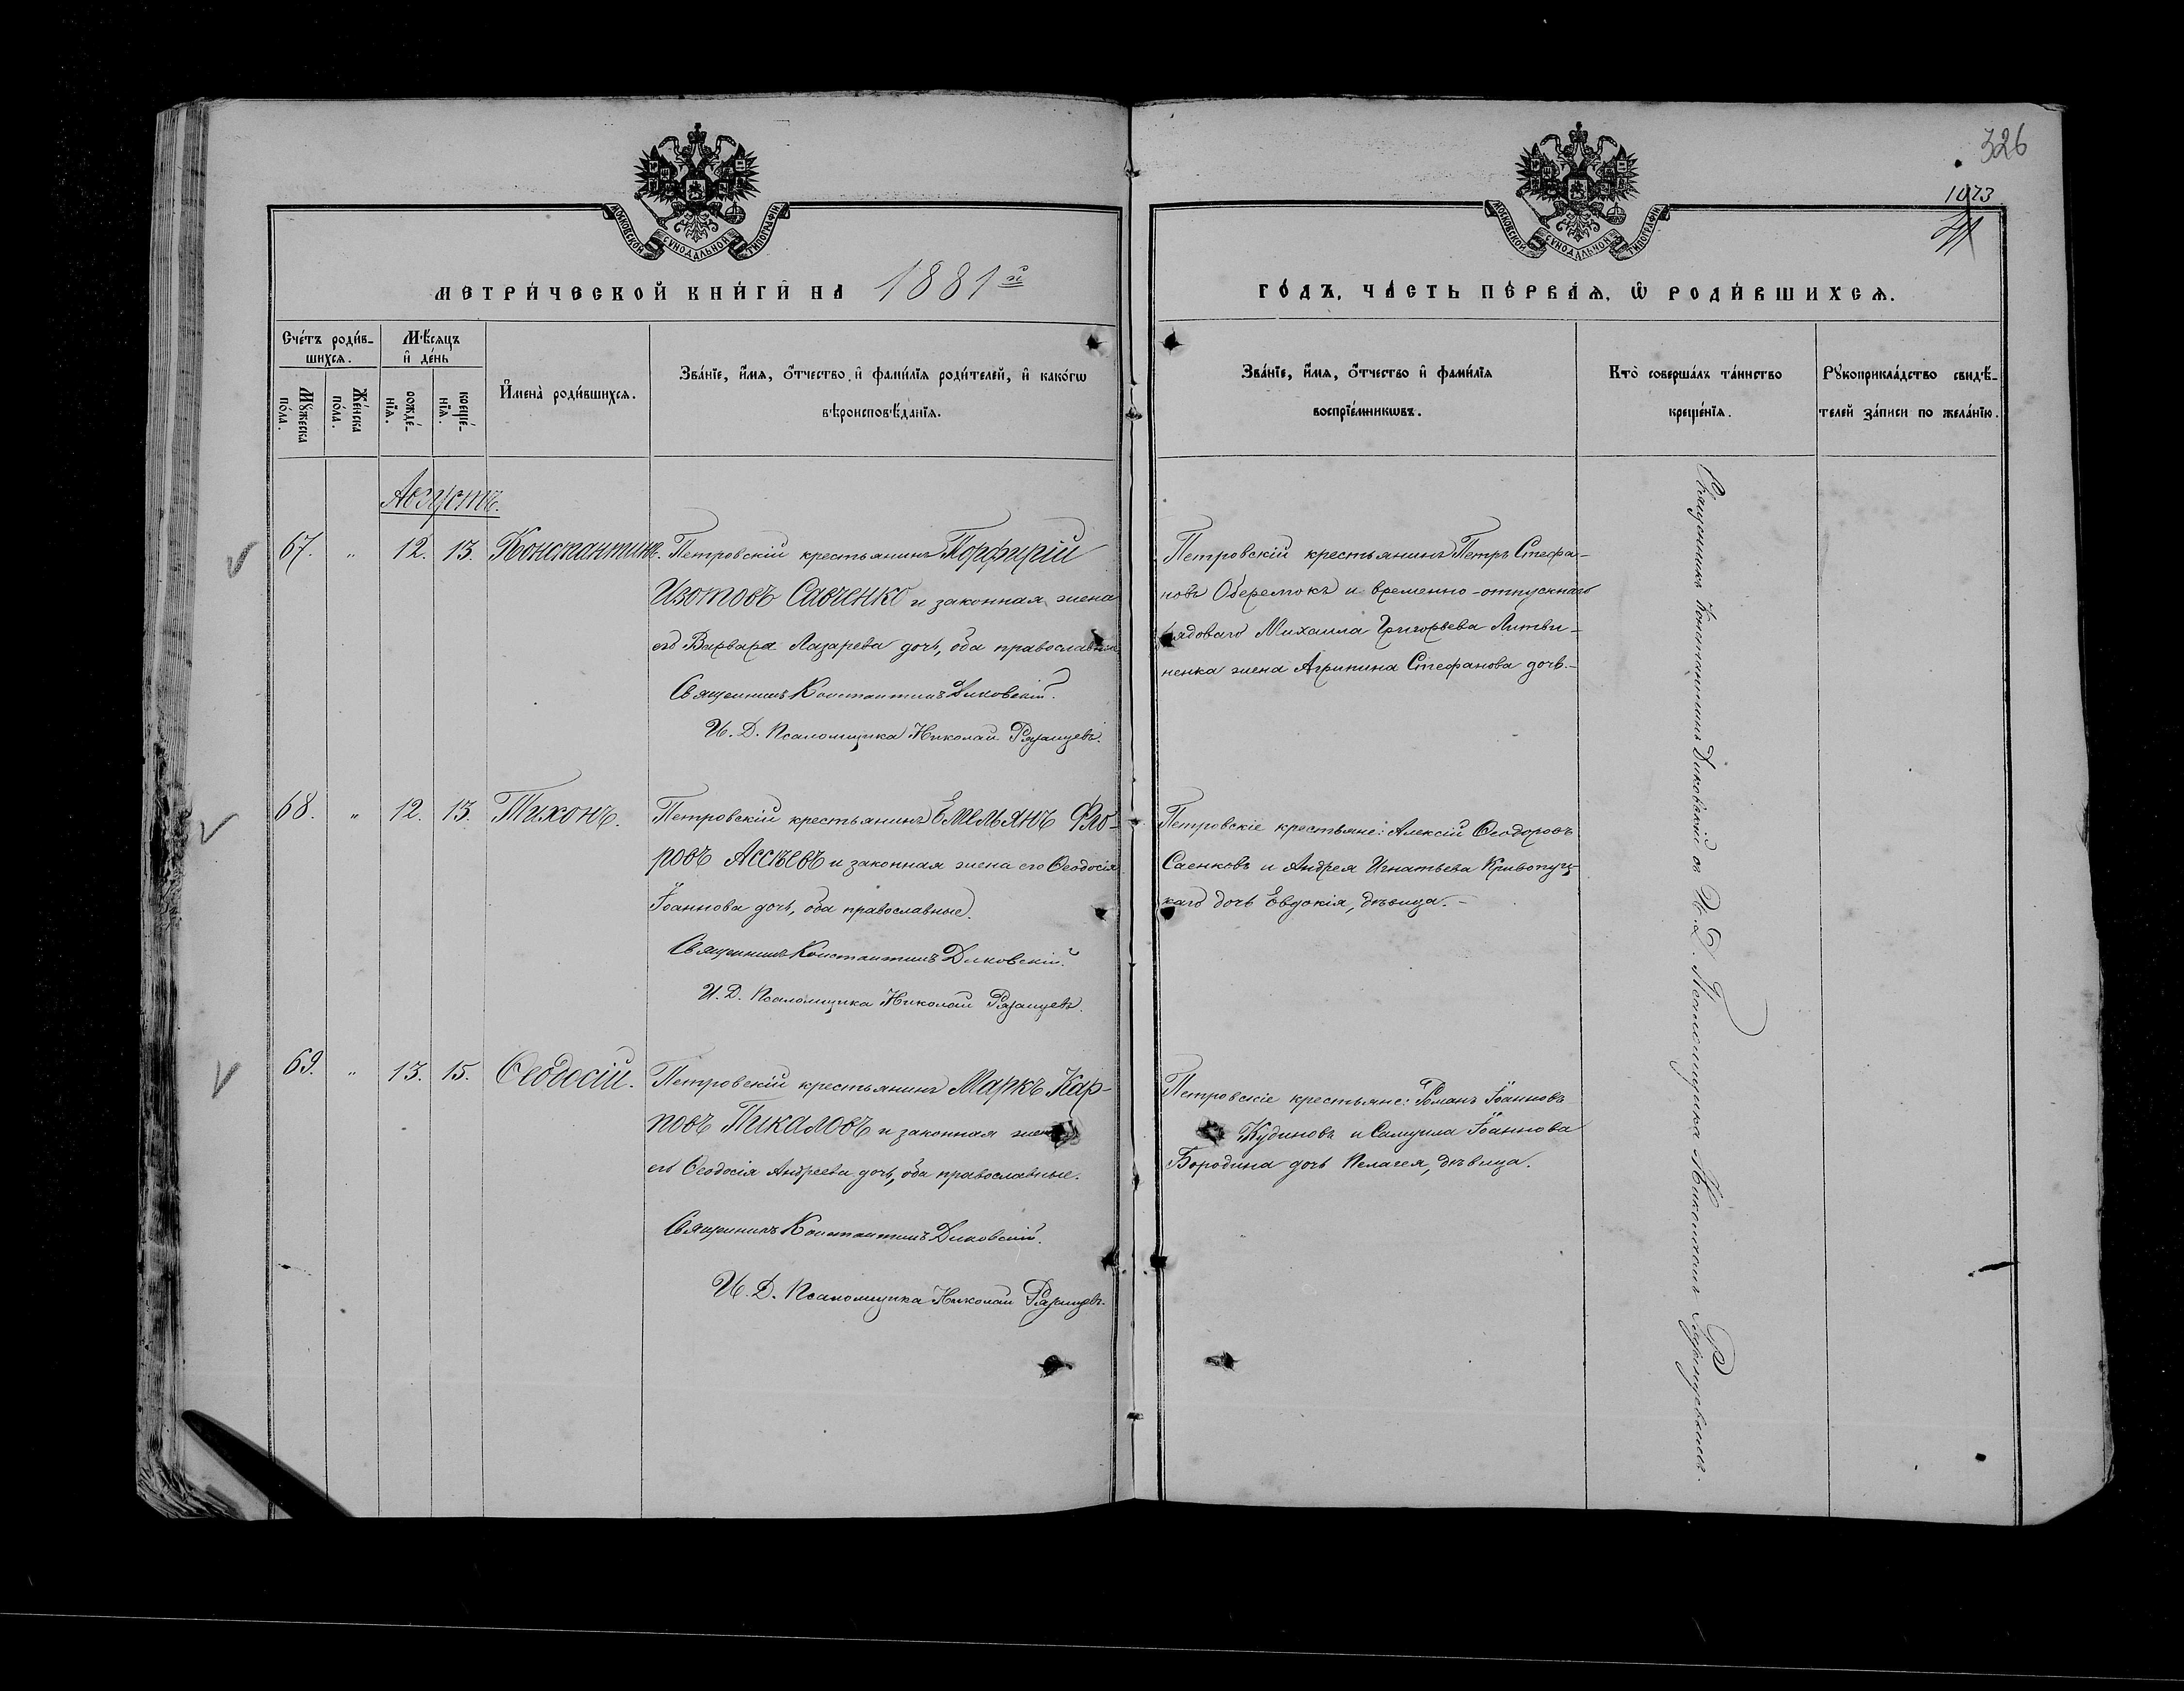 326
1073
МОСКОВСКОЙ СѴНОДАЛЬНОЙ ТИПОГРАФІИ
МОСКОВСКОЙ СѴНОДАЛЬНОЙ ТИПОГРАФІИ
МЕТРИ́ЧЕСКОЙ КНИ́ГИ НА 1881й
ГО́ДЪ, ЧА́СТЬ ПЕ́РВАЯ, Ѡ РОДИ́ВШИХСЯ.
Сче́тъ роди́в-
шихся.
Му́жеска
по́ла.
Же́нска
по́ла.
Мѣ́сяцъ
и де́нь
рожде́-
нїя.
креще́-
нїя.
И҆мена̀ роди́вшихся.
Зва́нїе, и҆́мя, о҆́тчество и҆ фами́лїя роди́телей, и҆ како́гѡ
вѣроисповѣ́данїя.
Зва́нїе, и҆́мя, о҆́тчество и҆ фами́лїя
воспрїе́мникѡвъ.
Кто̀ соверша́лъ та́инство
креще́нїя.
Рꙋкоприкла́дство свидѣ́-
телей за́писи по жела́нїю.
Августъ.
67. " 12. 13. Константинъ. Петровскій крестьянинъ Порфирій
Изотовъ Савченко и законная жена
его Варвара Лазарева дочь, оба православные
Священникъ Константинъ Диковскій.
И. Д. Псаломщика Николай Рязанцевъ.
Петровскій крестьянинъ Петръ Стефа-
новъ Оберемокъ и временно-отпускнаго
рядоваго Михаила Григорьева Литви-
ненка жена Агрипина Стефанова дочь.-
68. " 12. 13. Тихонъ. Петровскій крестьянинъ Емельянъ Фло-
ровъ Ассѣевъ и законная жена его Ѳеодосія
Іоаннова дочь, оба православные.
Священникъ Константинъ Диковскій.
И. Д. Псаломщика Николай Рязанцевъ.
Петровскіе крестьяне: Алексій Ѳеодоровъ
Саенковъ и Андрея Игнатьева Кривопуц-
каго дочь Евдокія, дѣвица.-
69. " 13. 15. Ѳеодосій. Петровскій крестьянинъ Маркъ Кар-
повъ Пикаловъ и законная жена
его Ѳеодосія Андреева дочь, оба православные.
Священникъ Константинъ Диковскій.
И. Д. Псаломщика Николай Рязанцевъ.
Петровскіе крестьяне: Романъ Іоанновъ
Кудиновъ и Самуила Іоаннова
Бородина дочь Пелагея, дѣвица.
Священникъ Константинъ Диковскій съ И. Д. Псаломщика Николаемъ Рязанцевымъ.